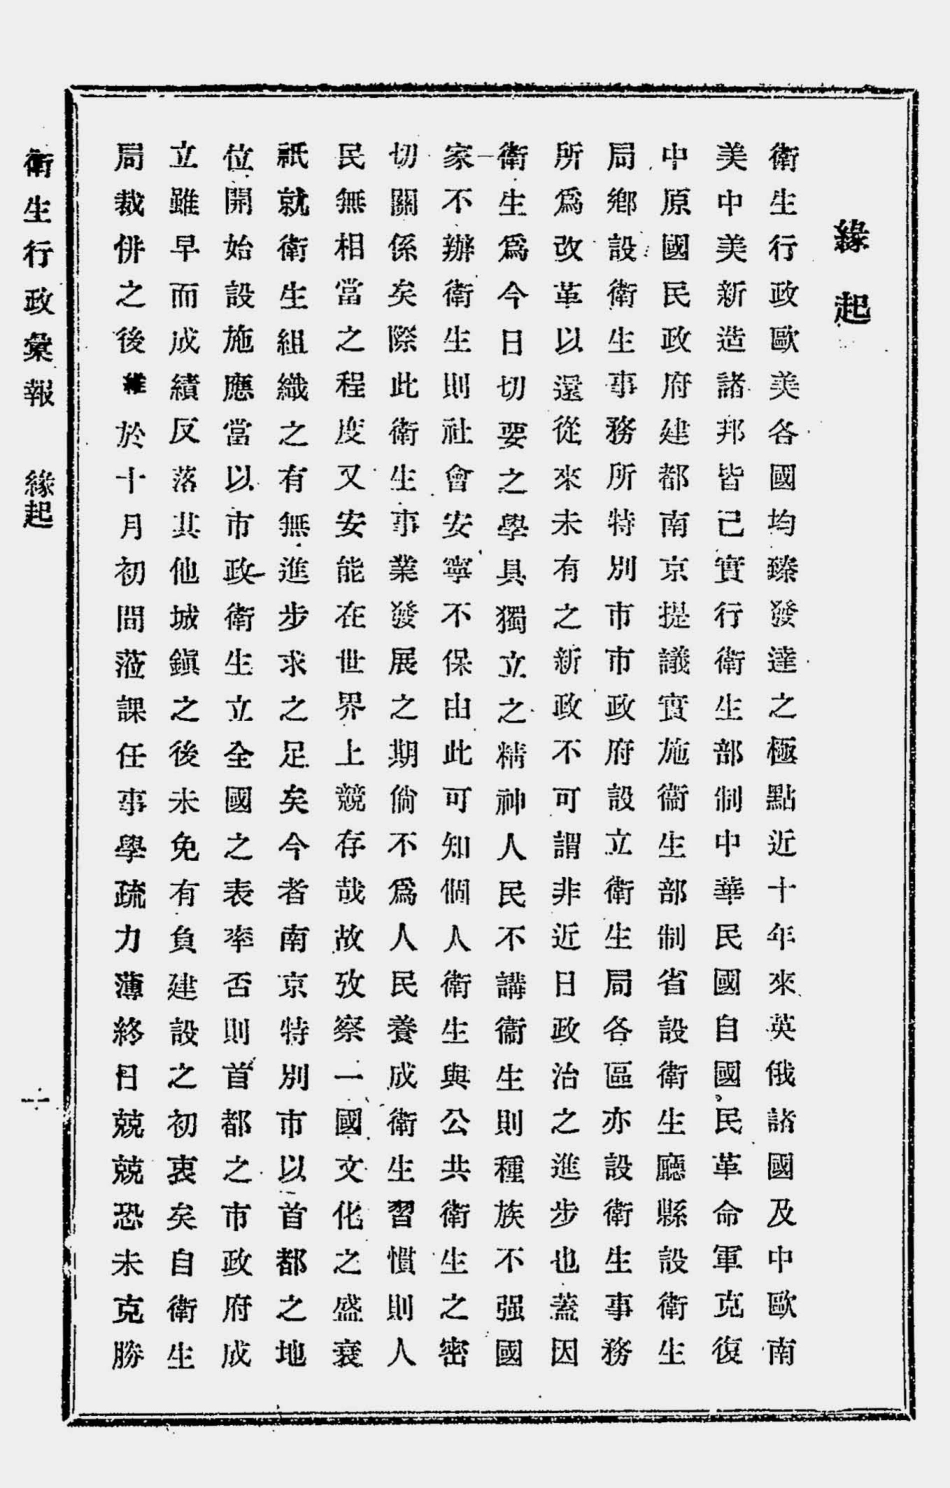 緣起
衛生行政歐美各國均臻發達之極點近十年來英俄諸國及中歐南
美中美新造諸邦皆已實行衛生部制中華民國自國民革命軍克復
中原國民政府建都南京提議實施衛生部制省設衛生廳縣設衛生
局鄉設衛生事務所特別市市政府設立衛生局各區亦設衛生事務
所爲改革以還從來未有之新政不可謂非近日政治之進步也蓋因
衛生爲今日切要之學具獨立之精神人民不講衛生則種族不强國
家不辦衛生則社會安寧不保由此可知個人衛生與公共衛生之密
切關係矣際此衛生事業發展之期倘不爲人民養成衛生習慣則人
民無相當之程度又安能在世界上競存哉故攷察一國文化之盛衰
祇就衛生組織之有無進步求之足矣今者南京特別市以首都之地
位開始設施應當以市政衛生立全國之表率否則首都之市政府成
立雖早而成績反落其他城鎭之後未免有負建設之初衷矣自衛生
局裁併之後維於十月初間蒞課任事學疏力薄終日兢兢恐未克勝
衛生行政彙報 緣起 一